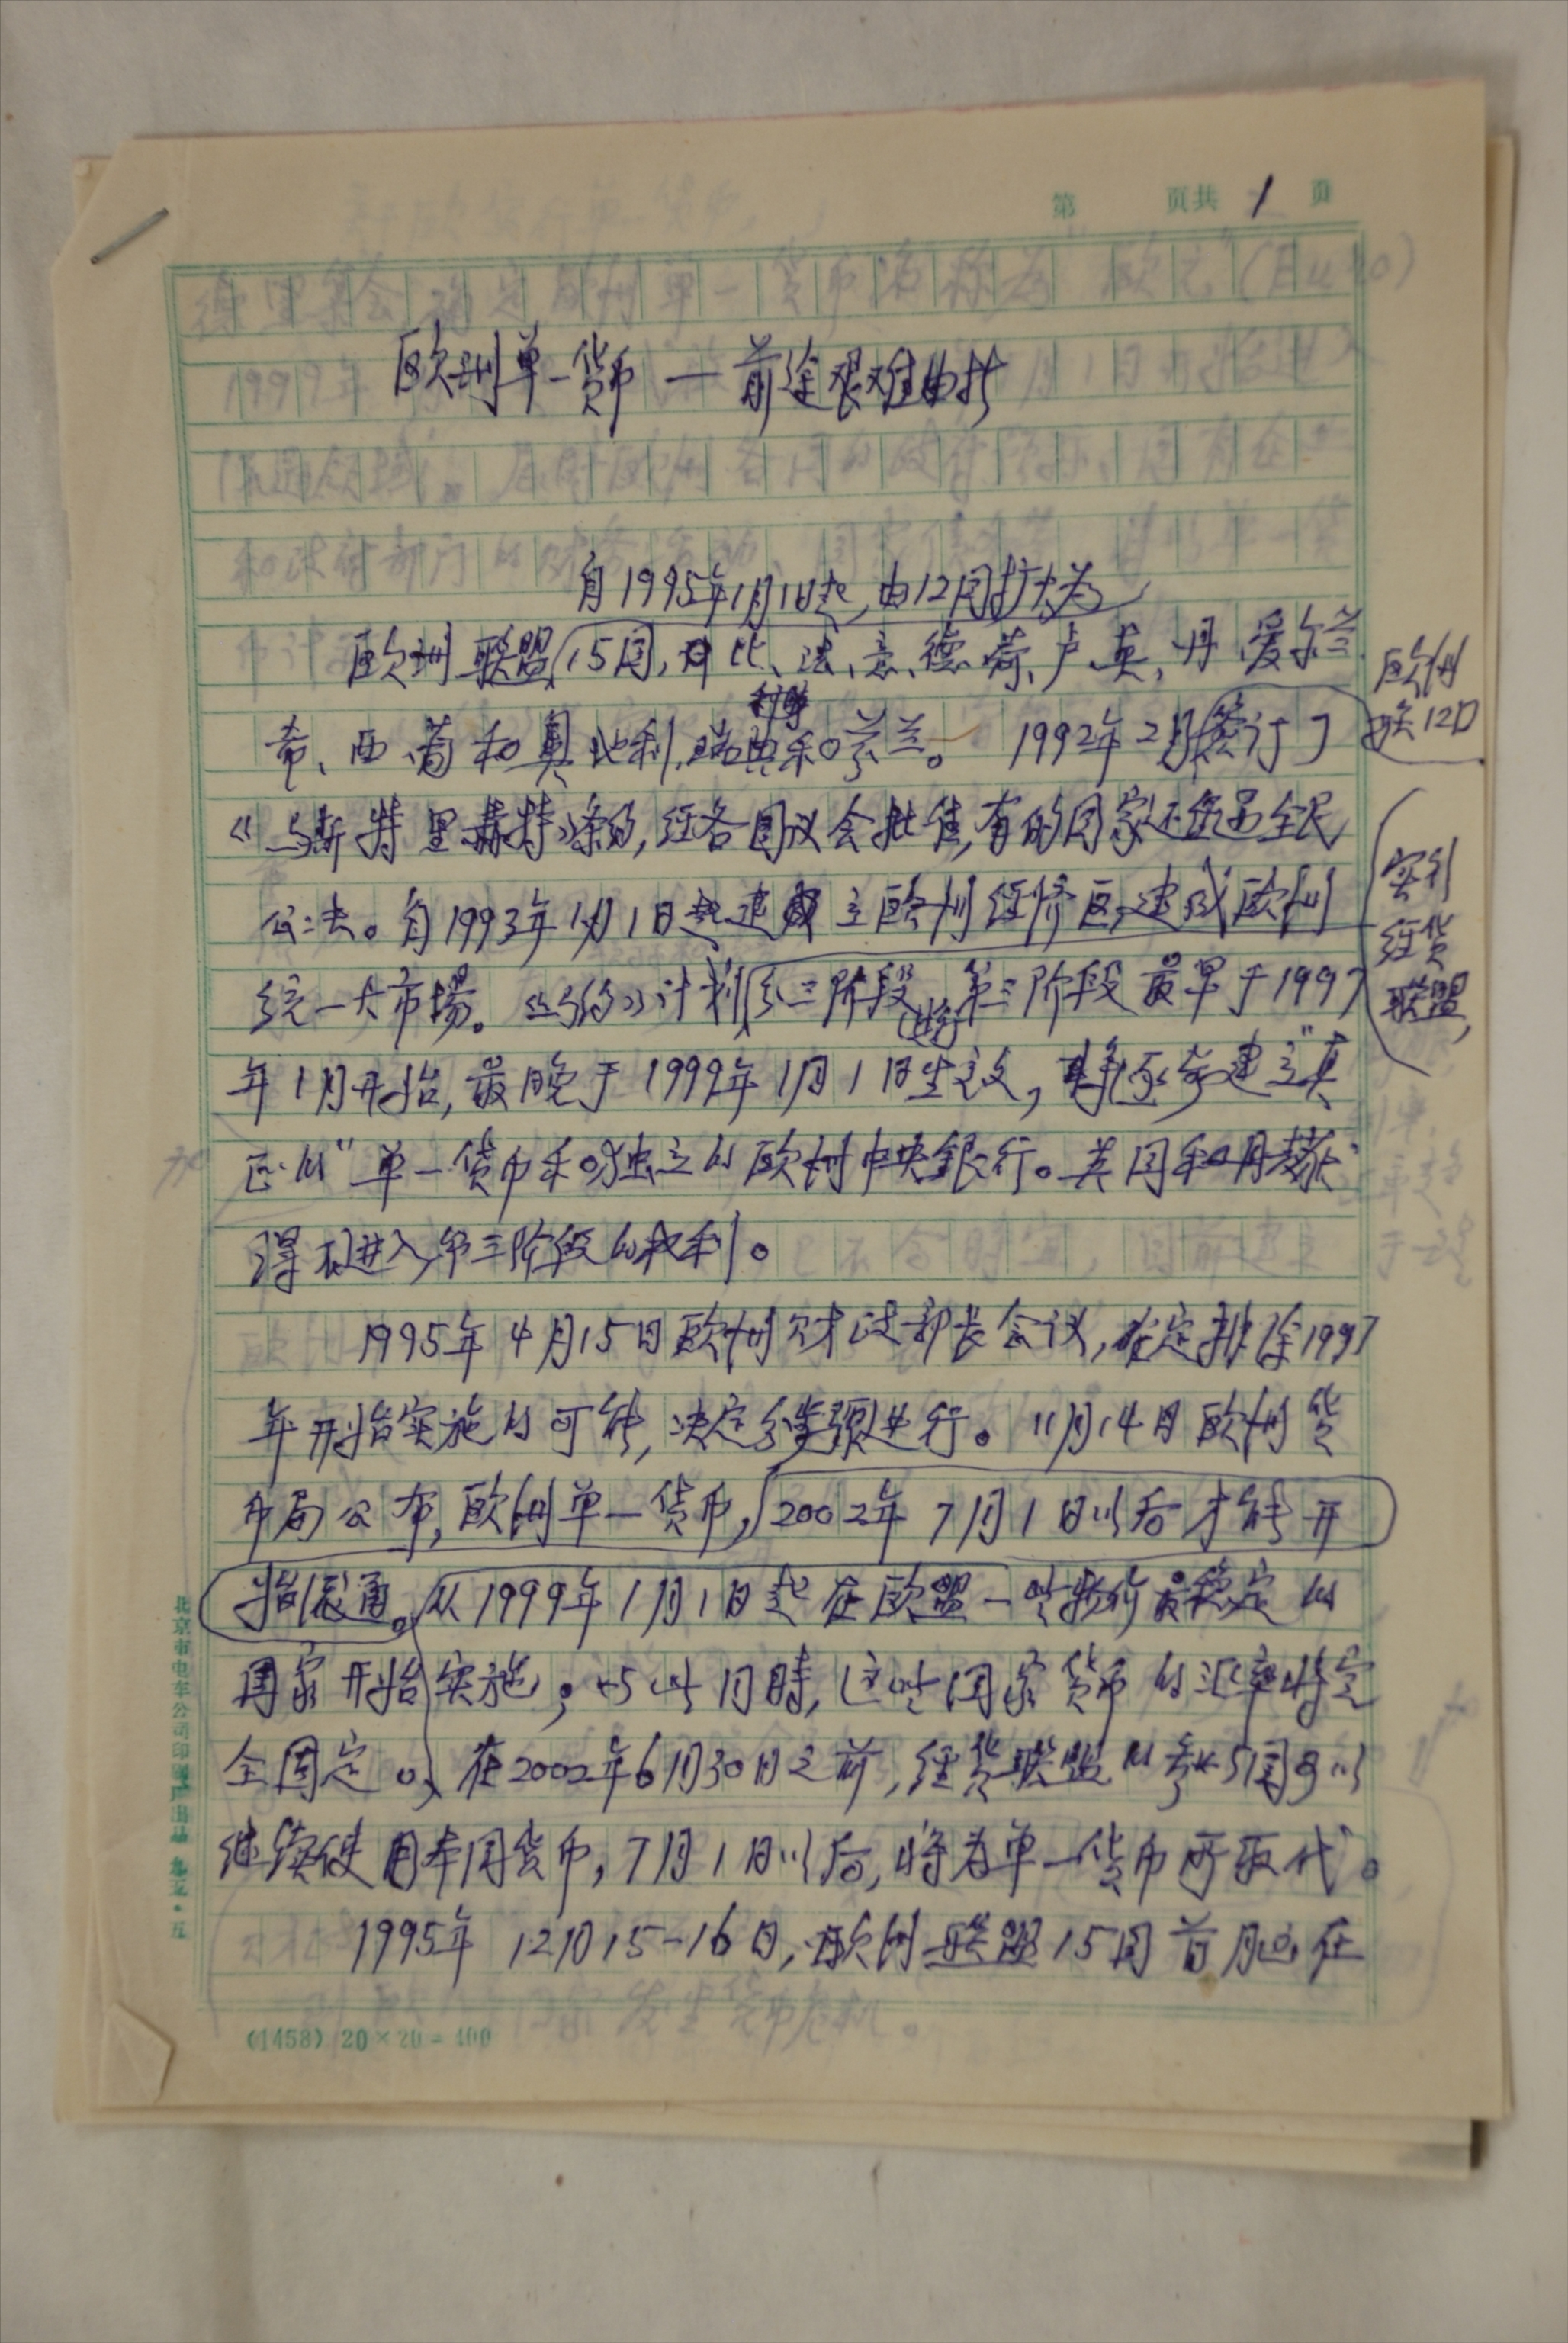 第 页共 1 页
欧洲单一货币 — 前途艰难曲折
自1995年1月1日起,由12国扩大为
欧洲联盟15国,比、法、意、德、荷、卢、英、丹、爱尔兰
希、西、葡和奥地利、瑞典和芬兰。 1992年2月签订了
欧洲
联12国
《马斯特里赫特》条约,经各国议会批准,有的国家还经过全民
公决。自1993年1月1日起建立欧洲经济区,建成欧洲
实行
经货
联盟,
统一大市场。《马约》计划分三阶段进行,第三阶段最早于1997
年1月开始,最晚于1999年1月1日生效,将逐步建立"真
正的"单一货币和独立的欧洲中央银行。英国和丹麦获
得不进入第三阶段的权利。
1995年4月15日欧洲财政部长会议,确定排除1997
年开始实施的可能,决定继续进行。11月14日欧洲货
币局公布,欧洲单一货币,2002年7月1日以后才能开
始流通。从1999年1月1日起在欧盟一些物价最稳定的
国家开始实施;与此同时,这些国家货币的汇率将完
全固定。在2002年6月30日之前,经货联盟的参与国可以
继续使用本国货币,7月1日以后,将为单一货币所取代。
1995年12月15-16日,欧洲联盟15国首脑在
北京市电车公司印刷厂出品 九五·五
(1458) 20×20=400